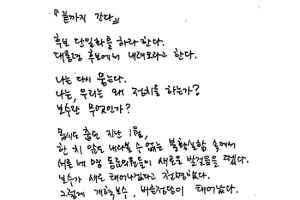 『끝까지 간다』
후보 단일화를 하라 한다.
대통령 후보에서 내려오라고 한다.
나는 다시 묻는다.
나는, 우리는 왜 정치를 하는가?
보수란 무엇인가?
몹시도 춥던 지난 1월,
한 치 앞도 내다볼 수 없는 불확실함 속에서
서른 세 명 동료의원들이 새로운 발걸음을 뗐다.
보수가 새로 태어나겠다고 천명했다.
그렇게 개혁보수, 바른정당이 태어났다.